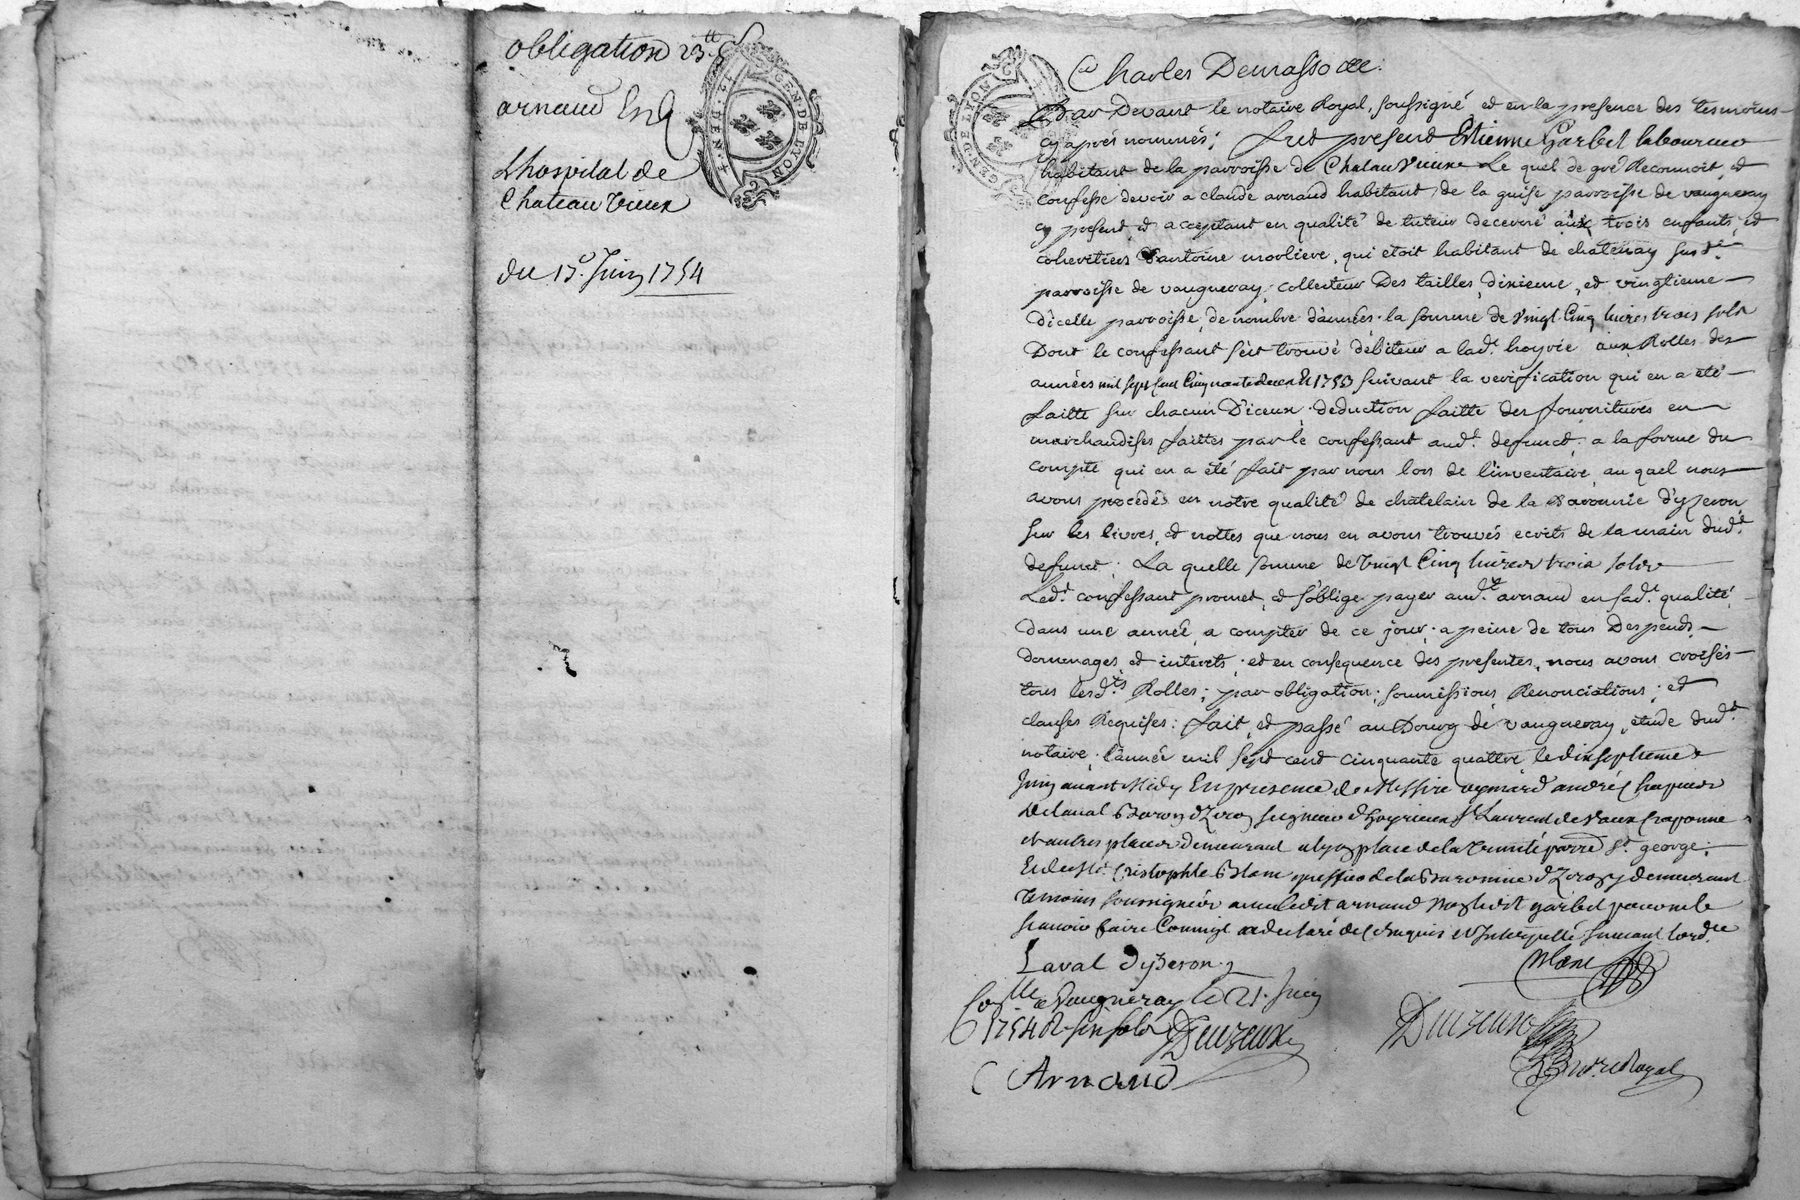 obligation 23.tt
arnaud
Lhospital de
Chateau Vieux
du 17e Juin 1754
GEN. DE LYON
GEN. DE LYON
Charles Demasso &c.
Par Devant le notaire Royal, soussigné et en la presence des tesmoins
cy aprés nommés; fut present Etienne Garbil laboureur
habitant de la parroisse de Chatau Vieux Le quel de gré Reconnoit, et
confesse devoir a claude arnaud habitant, de la guise parroisse de vaugneray
cy present, et acceptant en qualité de tuteur decerné aux trois enfants, et
coheritiers d'antoine morliere, qui etoit habitant de chatenay susd.e
parroisse de vaugneray, collecteur Des tailles, dixieme, et vingtieme
D'icelle parroisse, de nombre d'années, la somme de vingt Cinq livres trois sols
Dont le confessant s'est trouvé débiteur a lad.e hoyrie aux Rolles des
années mil sept Cent Cinquante deux Et 1753 suivant la verification qui en a été
faitte sur chacun D'iceux, deduction faitte des fournitures en
marchandises faittes par le confessant aud.t defunct, a la forme du
compte qui en a été fait par nous lors de l'inventaire, au quel nous
avons procédés en notre qualité de chatelain de la Baronnie d'yzeron
sur les livres, et nottes que nous en avons trouvés ecrits de la main dud.t
defunct; La quelle somme de Vingt Cinq livres trois sols
Led.t confessant promet, et s'oblige payer aud.t arnaud en sad.e qualité,
dans une année, a compter de ce jour, a peine de tous Despends,
dommages, et interets; et en consequence des presentes, nous avons croisés
tous lesd.ts Rolles; par obligation; soumissions, Renonciations; et
clauses Requises: fait, et passé au Bourg de vaugneray, etude dud.t
notaire, l'année mil sept cent cinquante quattre, le dixseptieme
Juin avant Midy En presence de Messire aymard andré Chapuis
de laval Baron d'Izeron seigneur d'hoyrieux St Laurent de Vaux Craponne
et autres places demeurant a lyon place de la trinité parr.e St. george;
Et de Sr. Cristophle Blanc greffier de la Baronnie d'Izeron y demeurant
temoins soussignés avec ledit arnaud Non ledit garbil pour ne le
scavoir faire Comme il a declaré de Ce Enquis et Interpellé suivant lord.ce
Laval d'yzeron
Blanc
Con.lle a Vaugneray le 21. Juin
1754 R. six sols Dueureux
Dueureux
Arnaud
n.re Royal